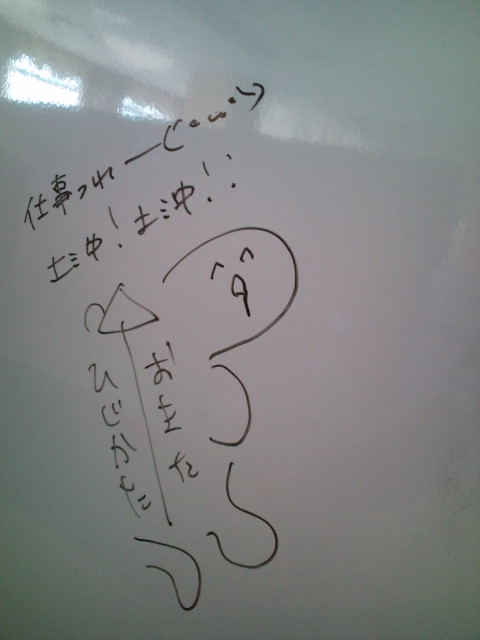 仕事つれー(´・ω・`)
土沖!土沖!!
おきた
ひじかた